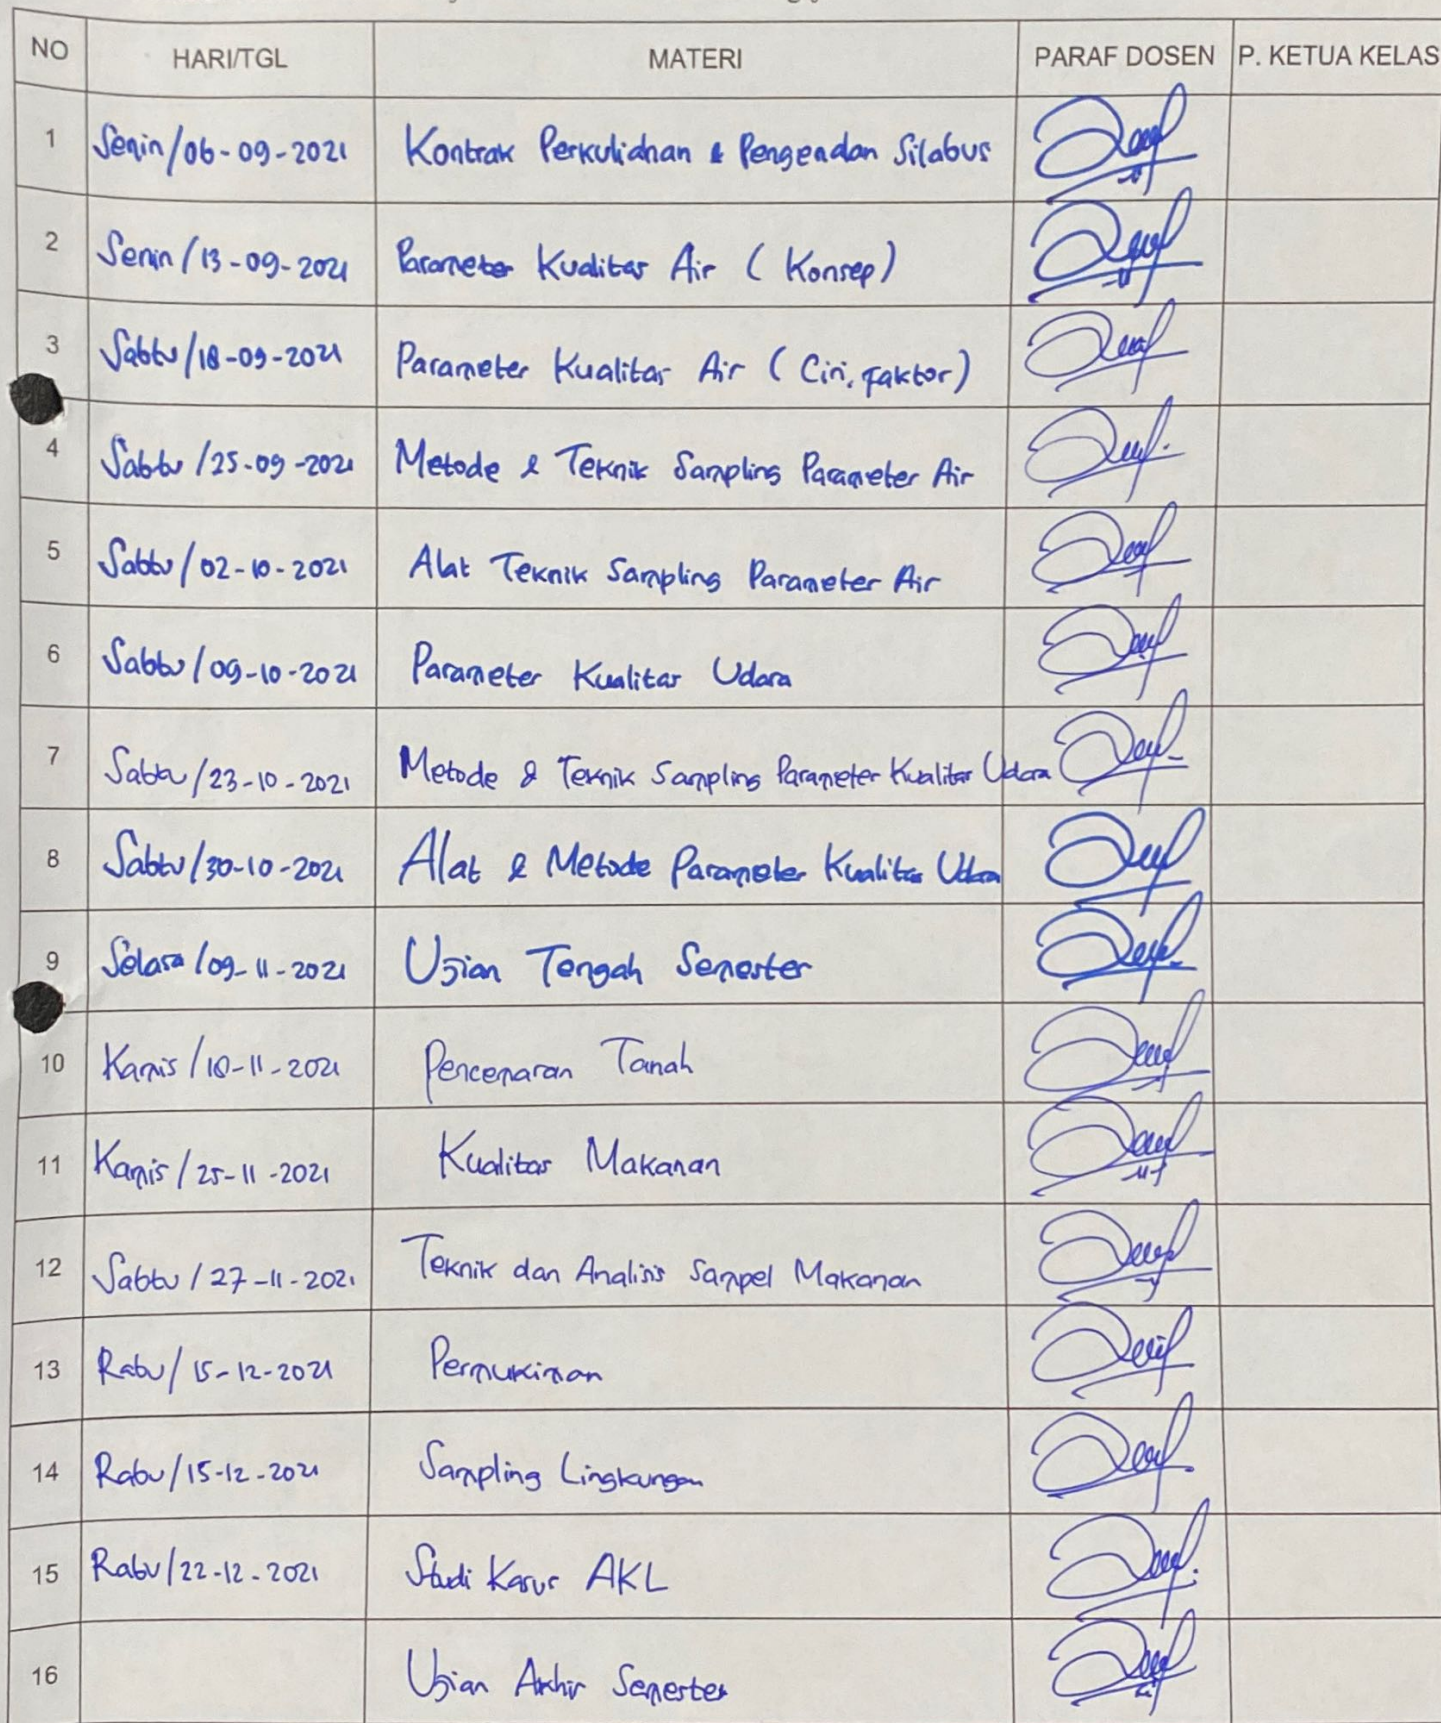 NO HARI/TGL MATERI PARAF DOSEN P. KETUA KELAS
1 Senin/06-09-2021 Kontrak Perkuliahan & Pengenalan Silabus
2 Senin/13-09-2021 Parameter Kualitas Air (Konsep)
3 Sabtu/18-09-2021 Parameter Kualitas Air (Ciri, Faktor)
4 Sabtu/25-09-2021 Metode & Teknik Sampling Parameter Air
5 Sabtu/02-10-2021 Alat Teknik Sampling Parameter Air
6 Sabtu/09-10-2021 Parameter Kualitas Udara
7 Sabtu/23-10-2021 Metode & Teknik Sampling Parameter Kualitas Udara
8 Sabtu/30-10-2021 Alat & Metode Parameter Kualitas Udara
9 Selasa/09-11-2021 Ujian Tengah Semester
10 Kamis/18-11-2021 Pencemaran Tanah
11 Kamis/25-11-2021 Kualitas Makanan
12 Sabtu/27-11-2021 Teknik dan Analisis Sampel Makanan
13 Rabu/15-12-2021 Permukiman
14 Rabu/15-12-2021 Sampling Lingkungan
15 Rabu/22-12-2021 Studi Kasus AKL
16 Ujian Akhir Semester